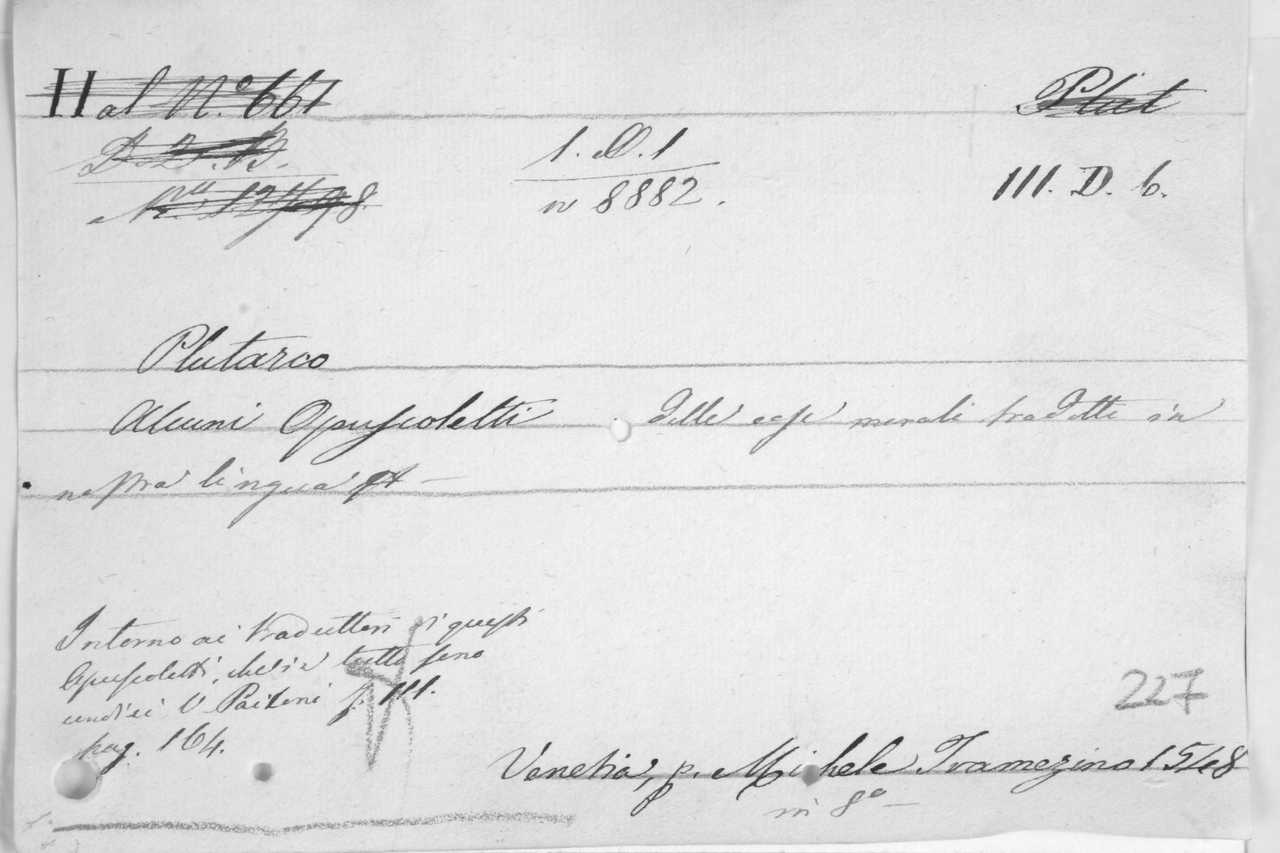 Hal N.º 661
Plut
D. 2. B.
1. D. 1
n 8882.
III. D. 6.
Plutarco
Alcuni Opuscoletti delle cose morali tradotti in
nostra lingua
Intorno ai traduttori di questi
Opuscoletti, che in tutto sono
undici V. Paitoni
pag. 164.
227
Venetia, p. Michele Tramezino 1548
in 8º